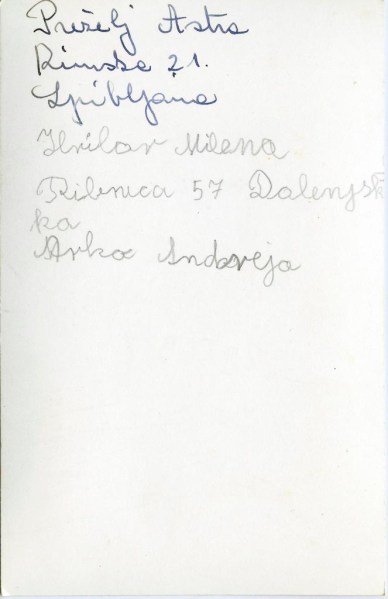 Preželj Astra
Rimska 21.
Ljubljana
Milena
Ribnica 57 Dolenjsk
ka
Arko Andreja